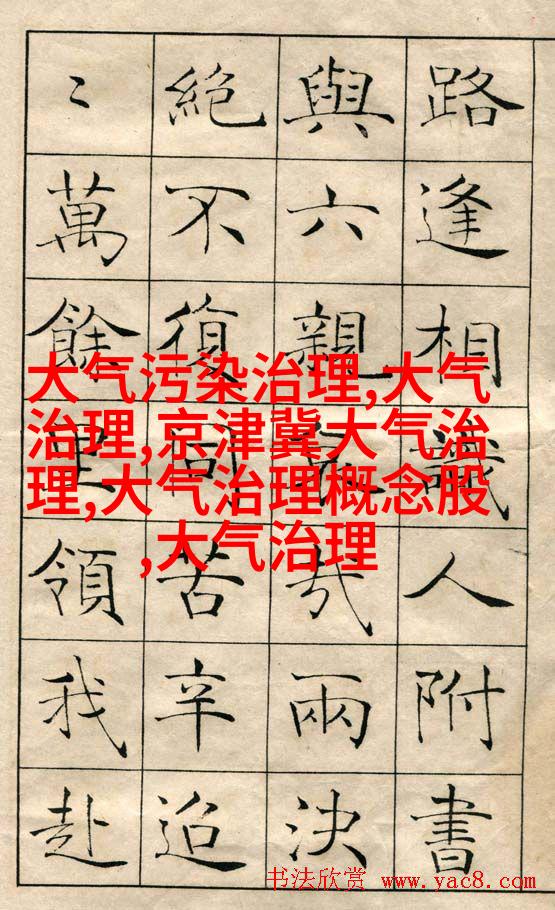 路逢相識人附書
與六親哉兩決
絕不復同苦辛迢
〻萬餘里領我赴
大气污染治理,大气
治理,京津冀大气治
理,大气治理概念股
,大气治理
书法欣赏 www.yac8.com